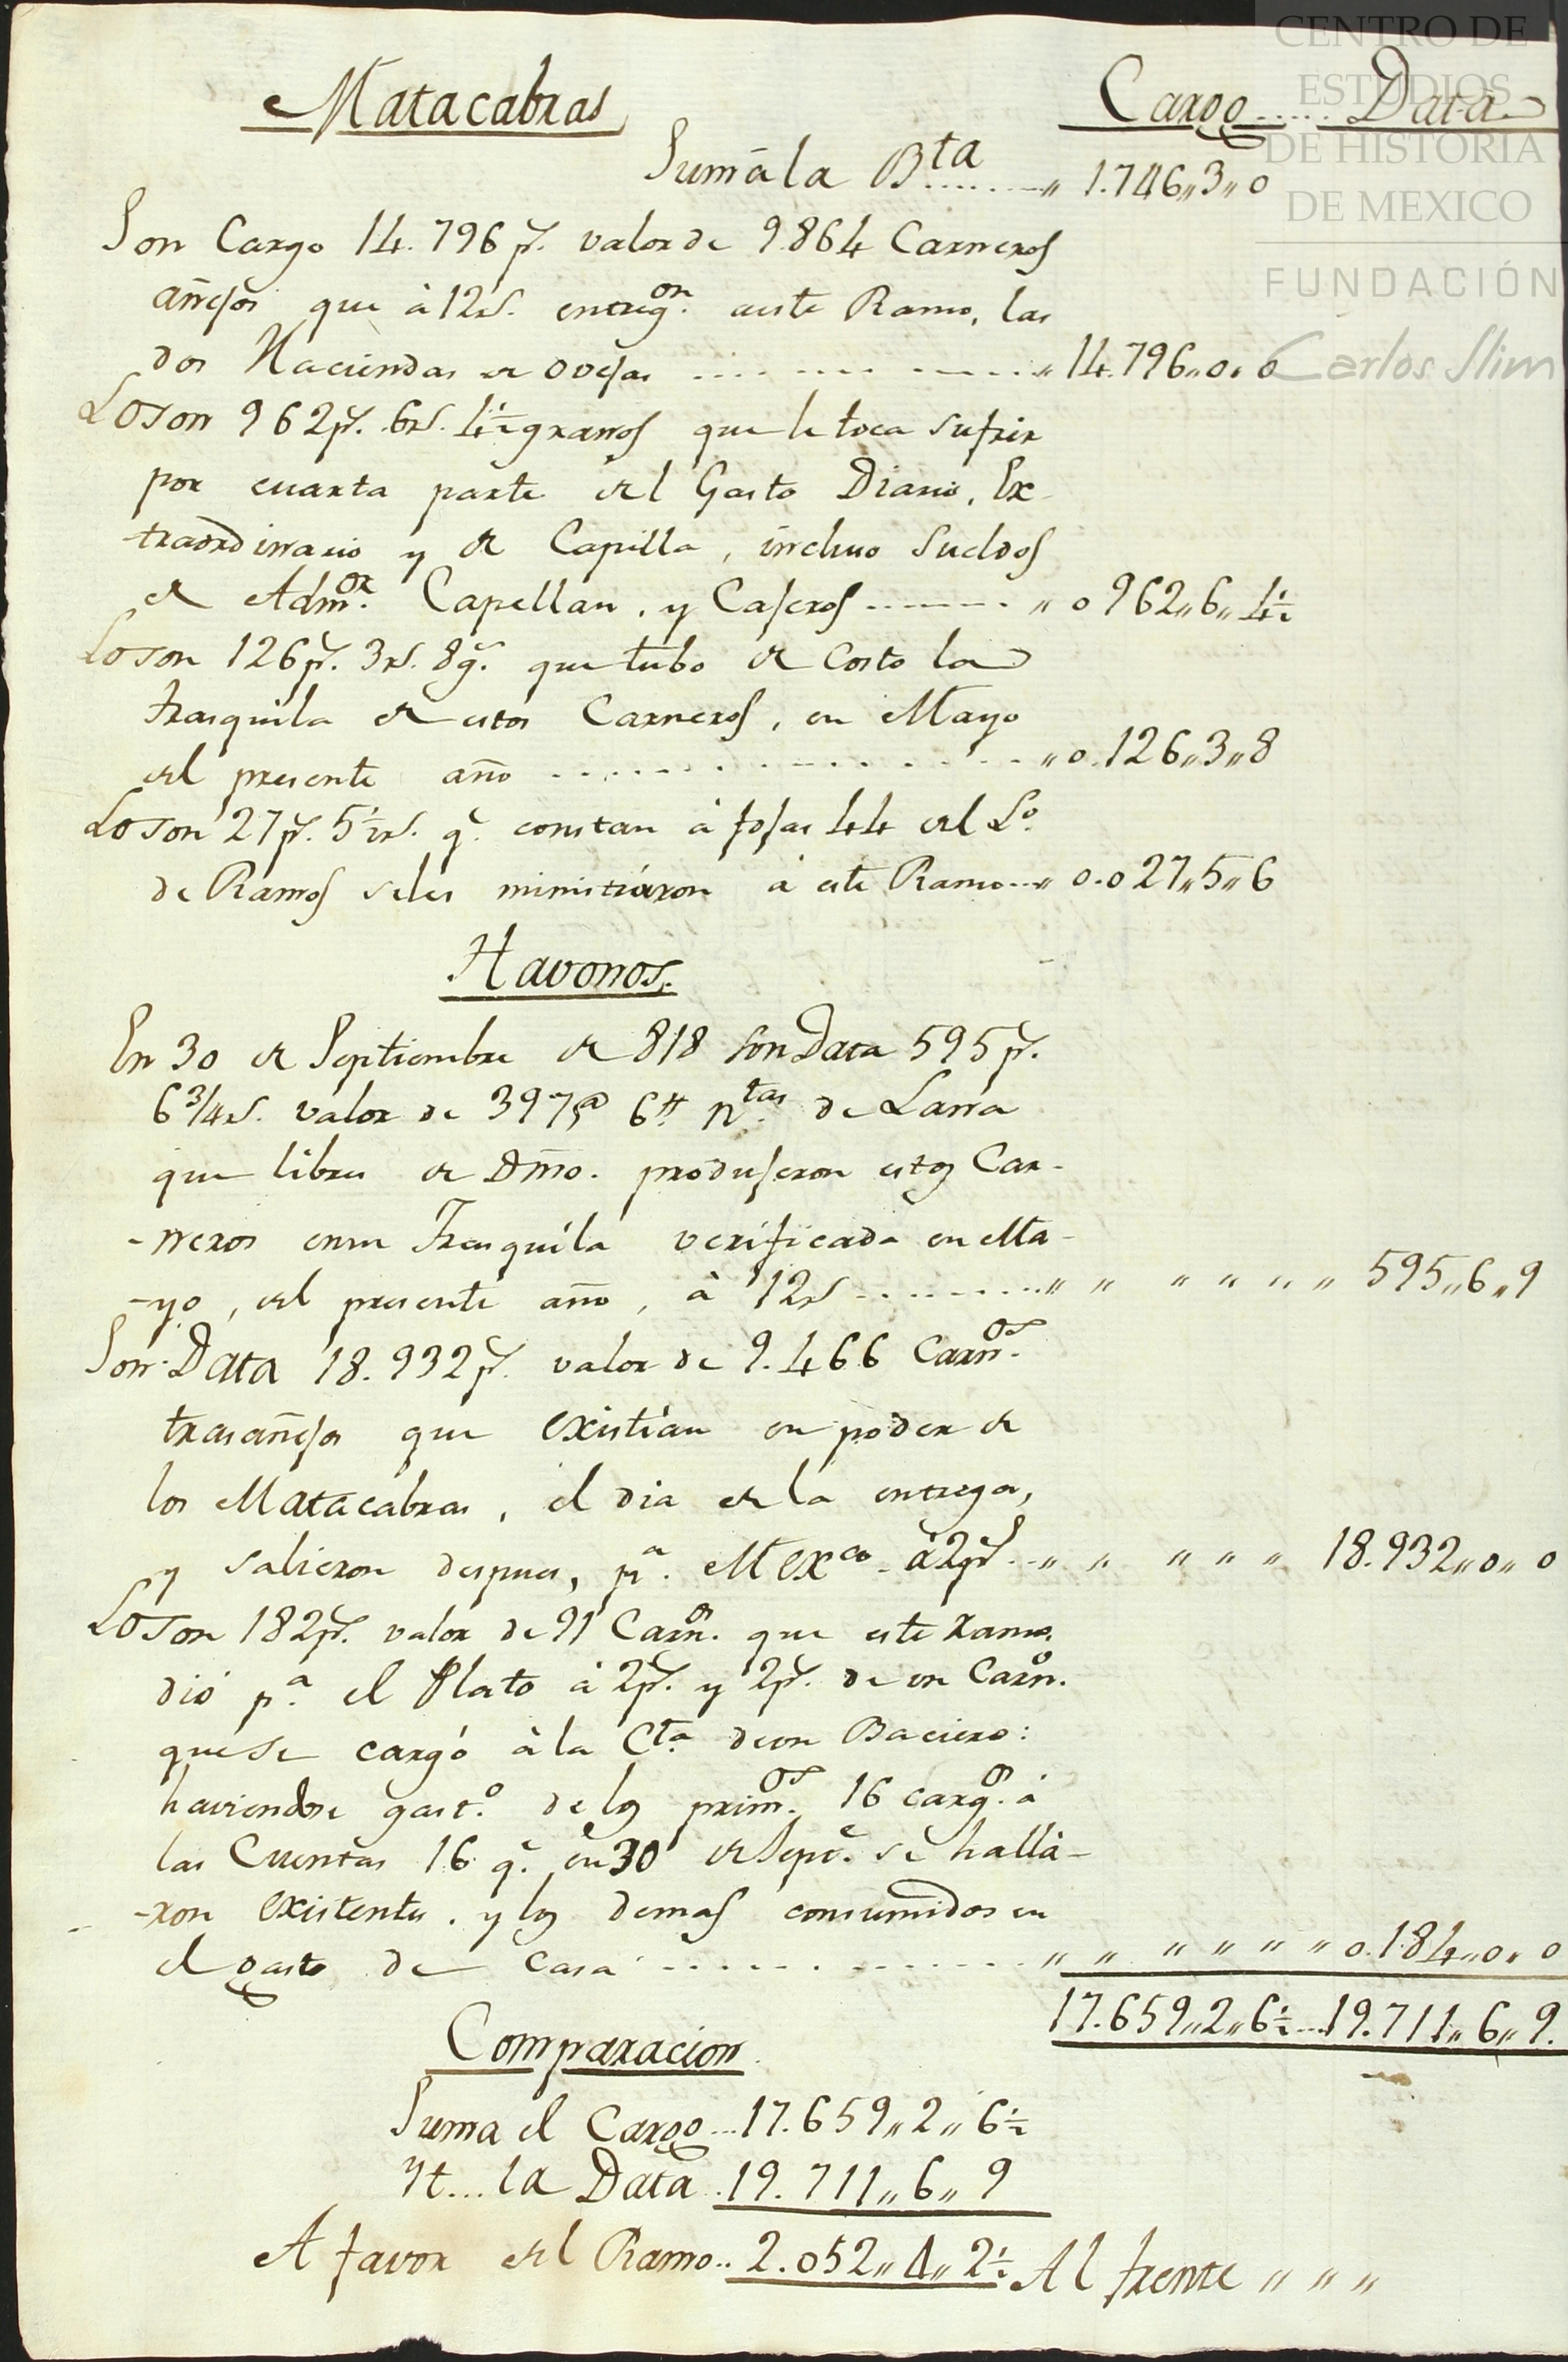 CENTRO DE
ESTUDIOS
DE HISTORIA
DE MEXICO
FUNDACIÓN
Carlos Slim
Matacabras Cargo..... Data
Suma a la Bta........." 1.746"3"0
Son Cargo 14.796 ps. valor de 9.864 Carneros
añejos que à 12 rs. entregon. a este Ramo, las
dos Haciendas de ovejas ................" 14.796"0"0
Lo son 962 ps. 6 rs. 4½ granos que le toca sufrir
por cuarta parte del Gasto Diario, Ex-
-traordinario y de Capilla, incluso Sueldos
de Admor. Capellan, y Caseros ........." 0 962"6"4½
Lo son 126 ps. 3 rs. 8 gs. que tubo de costo la
trasquila de estos Carneros, en Mayo
del presente año ................" 0.126"3"8
Lo son 27 ps. 5½ rs. q. constan à fojas 44 del Lo.
de Ramos seles ministràron à este Ramo..." 0.027"5"6
Havonos.
En 30 de Septiembre de 818 son Data 595 ps.
6¾ rs. valor de 397 @ 6 tt ntas. de Lana
que libres de Dmo. produjeron estos Car-
-neros en su Trasquila verificada en Ma-
-yo, del presente año, à 12 rs .........." " " " " " 595"6"9
Son Data 18.932 ps. valor de 9.466 Carnos.
trasañejos que existían en poder de
los Matacabras, el dia de la entrega,
y salieron despues, pa. Mexco. à 2 ps..." " " " " 18.932"0"0
Lo son 182 ps. valor de 91 Carns. que este Ramo,
diò pa. el Plato à 2 ps. y 2 ps. de un Carno.
que se cargó à la Cta. de un Baciero:
haviendose gasto. de los primos. 16 cargos. à
las Cuentas 16 q. en 30 de Sepe. se hallà-
-ron existentes, y los demas consumidos en
el gasto de casa ................" " " " " " 0.184"0"0
17.659"2"6½...19.711"6"9.
Comparacion
Suma el Cargo...17.659"2"6½
Yt... la Data..19.711"6"9
A favor del Ramo..2.052"4"2½ Al frente " " "